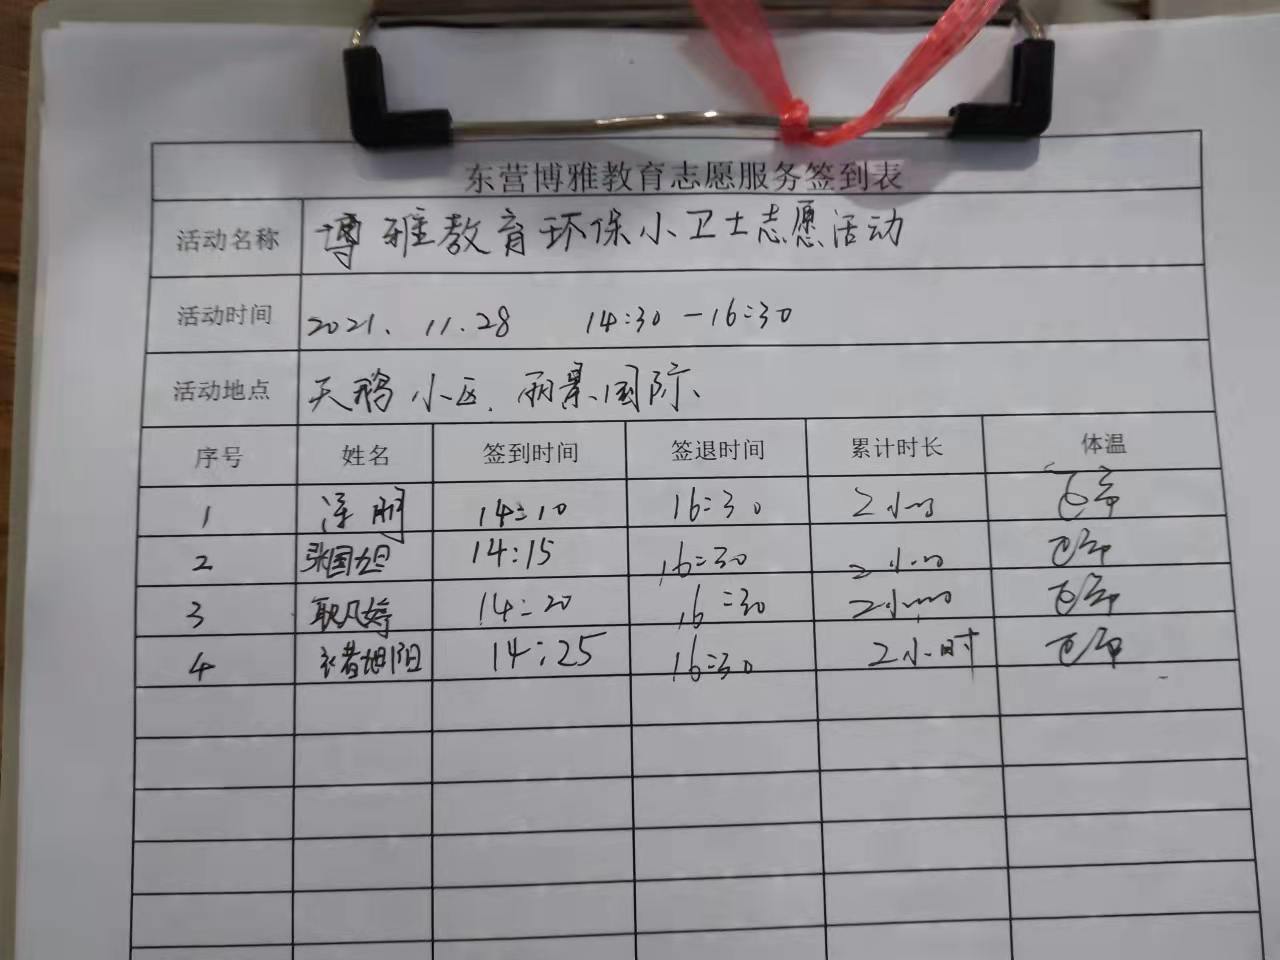 东营博雅教育志愿服务签到表
活动名称 博雅教育环保小卫士志愿活动
活动时间 2021.11.28 14:30-16:30
活动地点 天鹅小区.丽景国际
序号 姓名 签到时间 签退时间 累计时长 体温
1 14:10 16:30 2小时 正常
2 张国旭 14:15 16:30 2小时 正常
3 耿凡婷 14:20 16:30 2小时 正常
4 14:25 16:30 2小时 正常